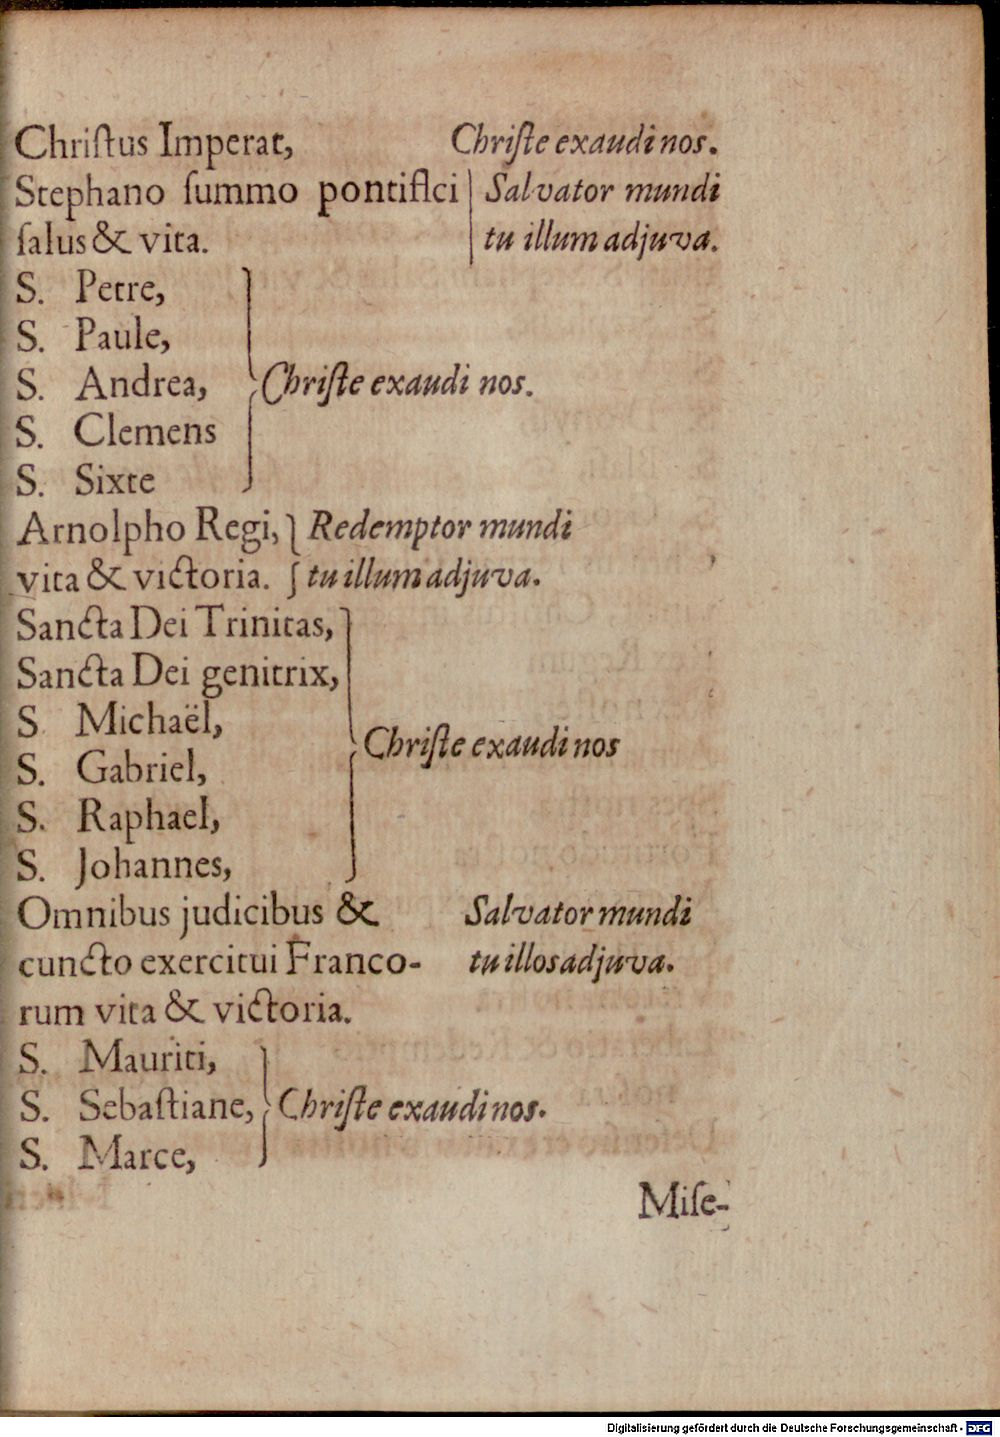 Chriſtus Imperat, Chriſte exaudi nos.
Stephano ſummo pontiflci Salvator mundi
ſalus & vita. tu illum adjuva.
S. Petre,
S. Paule,
S. Andrea, Chriſte exaudi nos.
S. Clemens
S. Sixte
Arnolpho Regi, Redemptor mundi
vita & victoria. tu illum adjuva.
Sancta Dei Trinitas,
Sancta Dei genitrix,
S Michaël,
Chriſte exaudi nos
S. Gabriel,
S. Raphael,
S. Johannes,
Omnibus judicibus & Salvator mundi
cuncto exercitui Franco- tu illos adjuva.
rum vita & victoria.
S. Mauriti,
S. Sebaſtiane, Chriſte exaudi nos.
S. Marce,
Miſe-
Digitalisierung gefördert durch die Deutsche Forschungsgemeinschaft - DFG